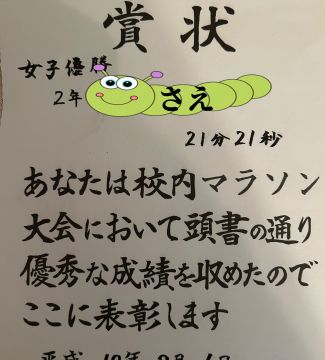 賞状
女子優勝
2年
さえ
21分21秒
あなたは校内マラソン
大会において頭書の通り
優秀な成績を収めたので
ここに表彰します
平成